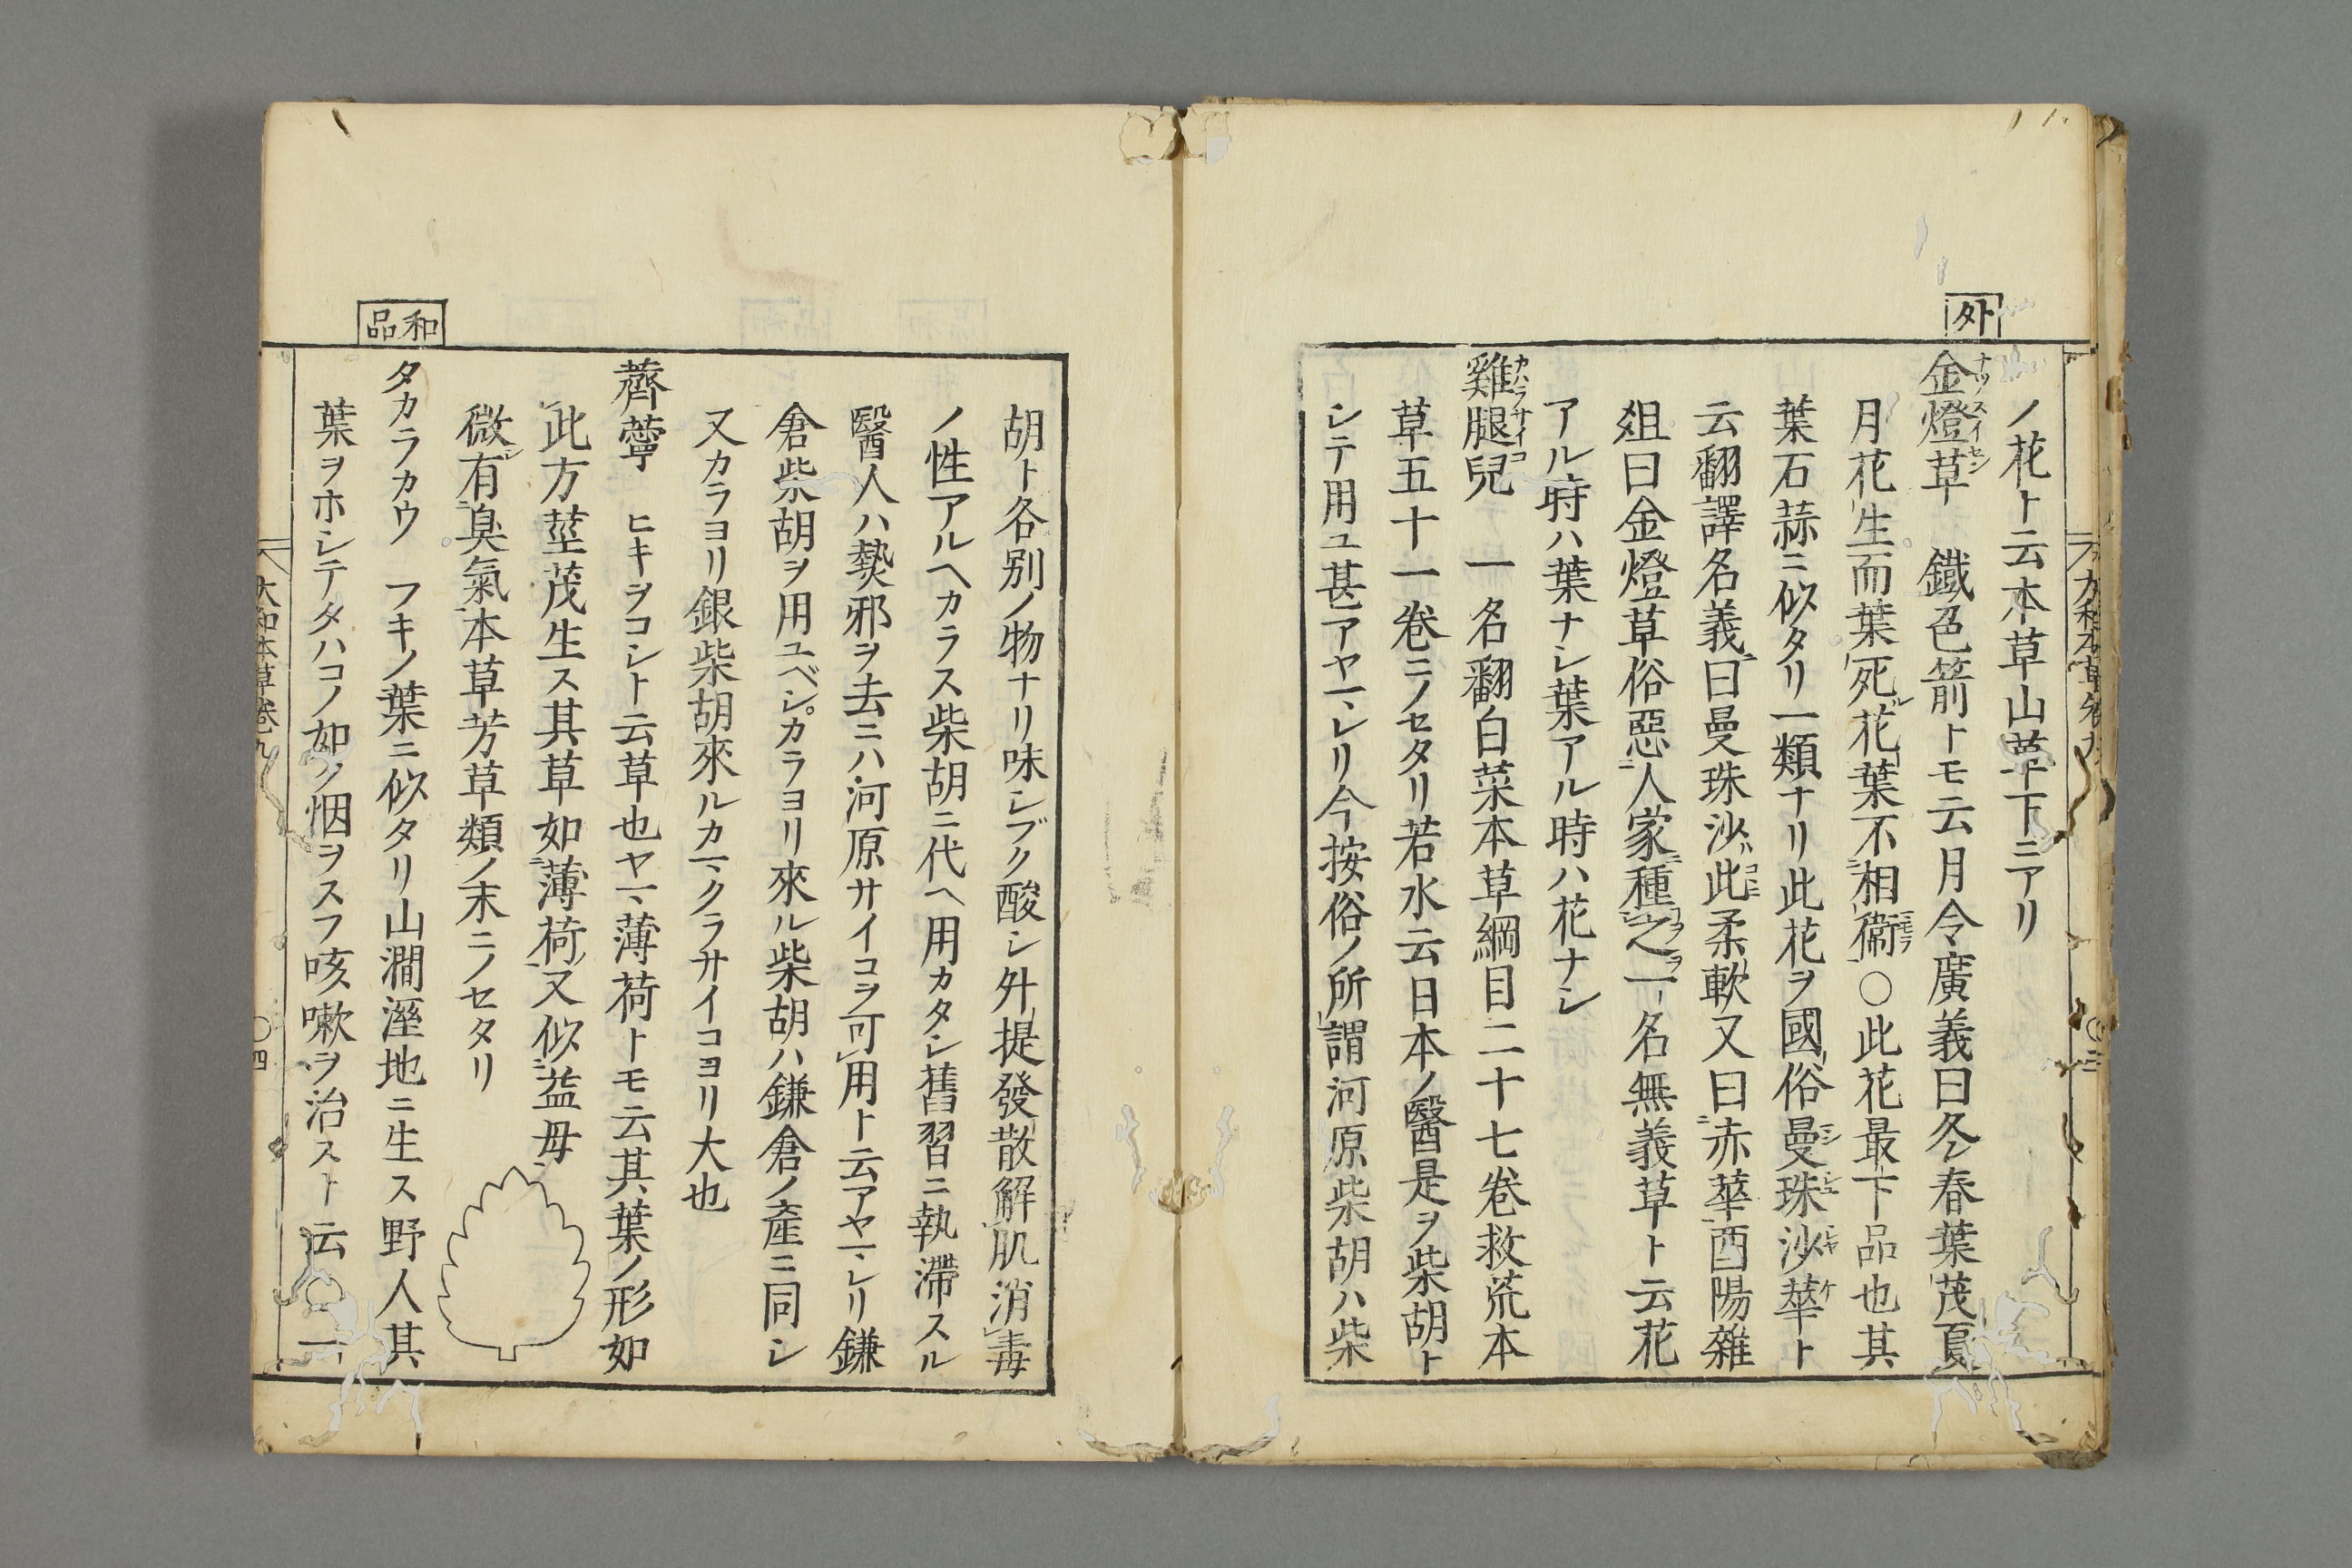 外
ノ花ト云本草山草下ニアリ
金燈草 鐵色箭トモ云月令廣義曰冬春葉茂夏
ナツスイセン
月花生而葉死花葉不相衞○此花最下品也其
葉石蒜ニ似タリ一類ナリ此花ヲ國俗曼珠沙華ト
云翻譯名義曰曼珠沙此柔軟又曰赤華酉陽雜
俎曰金燈草俗惡人家種之一名無義草ト云花
アル時ハ葉ナシ葉アル時ハ花ナシ
雞腿兒 一名翻白菜本草綱目二十七卷救荒本
カハラサイコ
草五十一卷ニノセタリ若水云日本ノ醫是ヲ柴胡ト
シテ用ユ甚アヤマレリ今按俗ノ所謂河原柴胡ハ柴
胡ト各別ノ物ナリ味シブク酸シ外提發散解肌消毒
ノ性アルヘカラス柴胡ニ代ヘ用カタシ舊習ニ執滯スル
醫人ハ𤍠邪ヲ去ニハ河原サイコヲ可用ト云アヤマレリ鎌
倉柴胡ヲ用ユベシ。カラヨリ來ル柴胡ハ鎌倉ノ產ニ同シ
又カラヨリ銀柴胡來ルカマクラサイコヨリ大也
薺薴 ヒキヲコシト云草也ヤマ薄荷トモ云其葉ノ形如
此方莖茂生ス其草如薄荷又似益母
微有臭氣本草芳草類ノ末ニノセタリ
和品
タカラカウ フキノ葉ニ似タリ山澗溼地ニ生ス野人其
葉ヲホシテタハコノ如ク烟ヲスフ咳嗽ヲ治スト云○一
大和本草卷九
○四